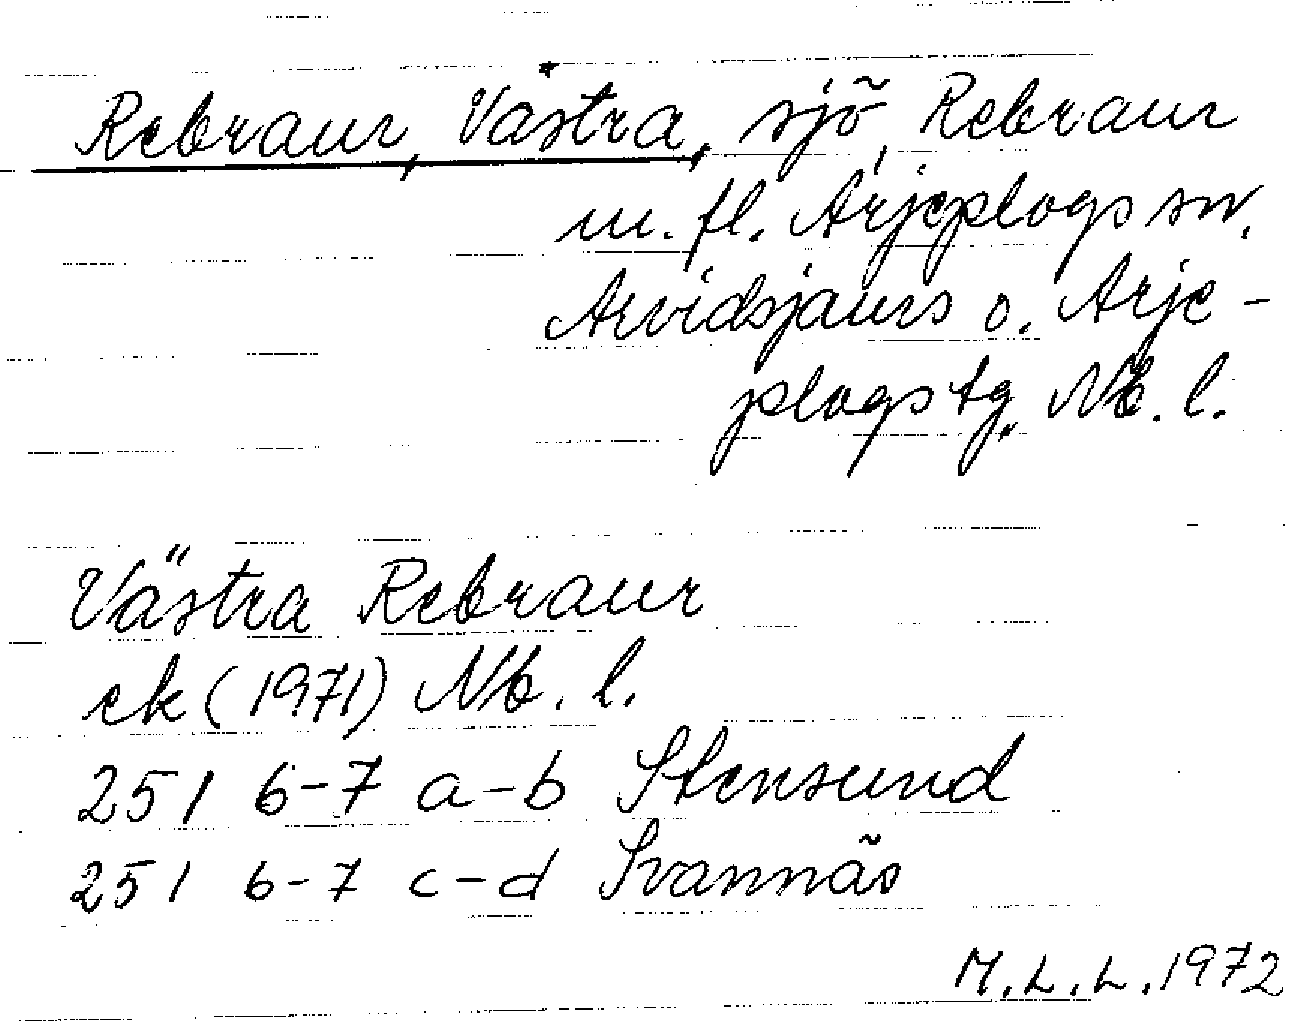 Rebraur, Västra, sjö, Rebraur
m. fl. Arjeplogs sn.
Arvidsjaurs o. Arje-
plogs tg. Nb. l.
Västra Rebraur
ek (1971) Nb. l.
25 I 6-7 a-b Stensund
25 I 6-7 c-d Svannäs
M.L.L. 1972